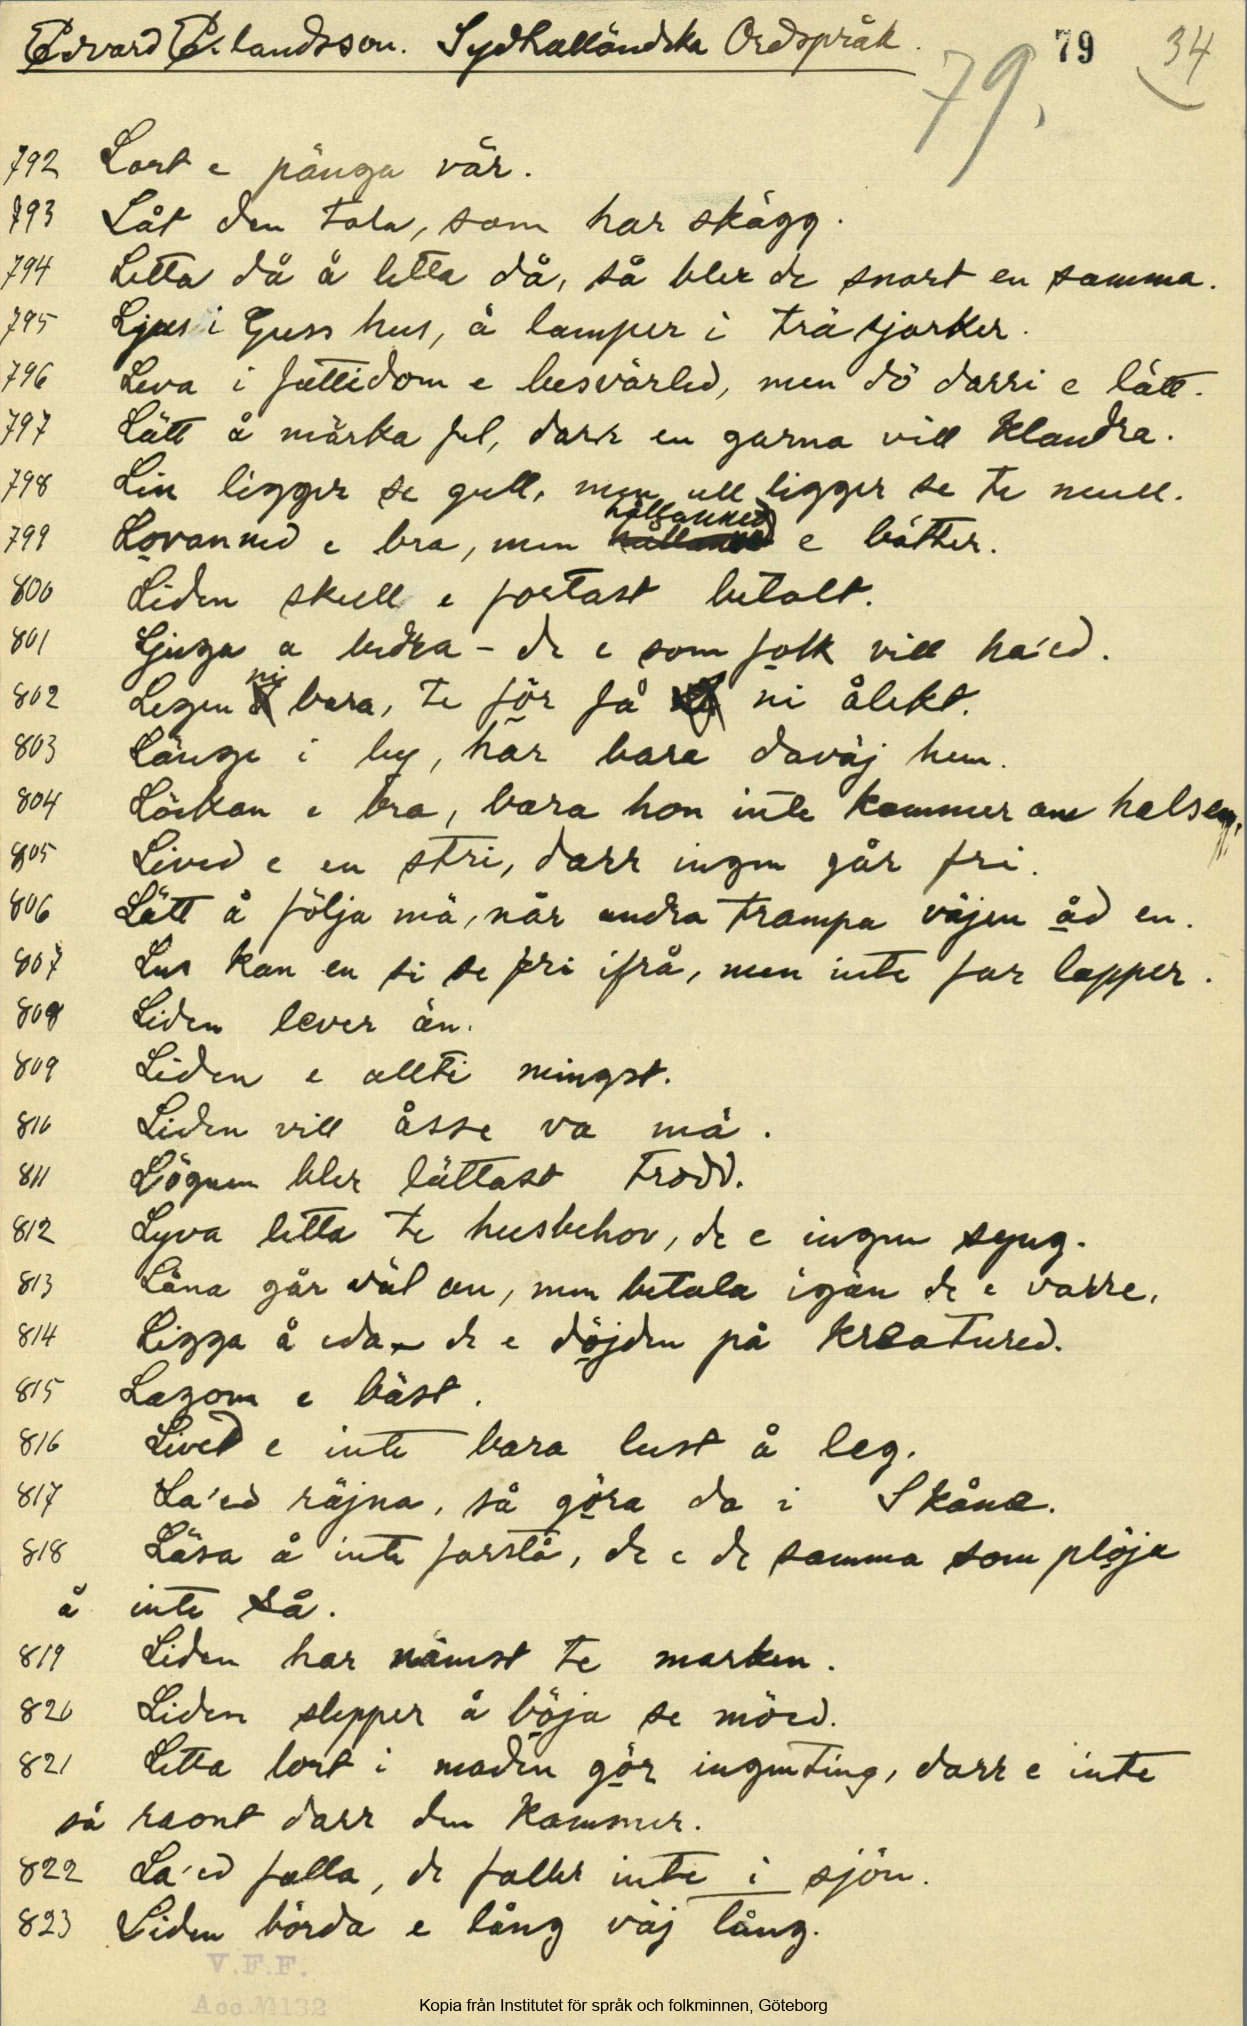 Edvard Erlandsson. Sydhalländska Ordspråk. 79 34
79.
792 Lort e pänga vär.
793 Låt den tala, som har skägg.
794 Letta då å letta då, så bler de snart en samma.
795 Ljus i Guss hus, å lamper i träsjorker.
796 Leva i fattidom e besvärled, men dö darri e lätt.
797 Lätt å märka fel, darr en garna vill klandra.
798 Lin ligger se gull, men ull ligger se te mull.
799 Lovanned e bra, men hållanned e bätter.
800 Liden skull e fortast betalt.
801 Ljuga a bedra - de e som folk vill ha'ed.
802 Legen ni bara, te för få ni ålekt.
803 Länge i by, här bara daväj hem.
804 Löckan e bra, bara hon inte kommer om halsen.
805 Lived e en stri, darr ingen går fri.
806 Lätt å följa mä, når andra trampa väjen åd en.
807 Lus kan en si se fri ifrå, men inte far lopper.
808 Liden lever än.
809 Liden e allti mingst.
810 Liden vill åsse va mä.
811 Lögnen bler lättast trodd.
812 Lyva letta te husbehov, de e ingen syng.
813 Låna går väl an, men betala igän de e varre.
814 Ligga å eda - de e döjden på kreatured.
815 Lagom e bäst.
816 Lived e inte bara lust å leg.
817 La'ed räjna, så göra da i Skåne.
818 Läsa å inte forstå, de e de samma som plöja
å inte så.
819 Liden har nämst te marken.
820 Liden slepper å böja se möed.
821 Letta lort i maden gör ingenting, darr e inte
så raont darr den kommer.
822 La'ed falla, de faller inte i sjön.
823 Liden börda e lång väj tång.
V.F.F.
Acc. № 1132
Kopia från Institutet för språk och folkminnen, Göteborg